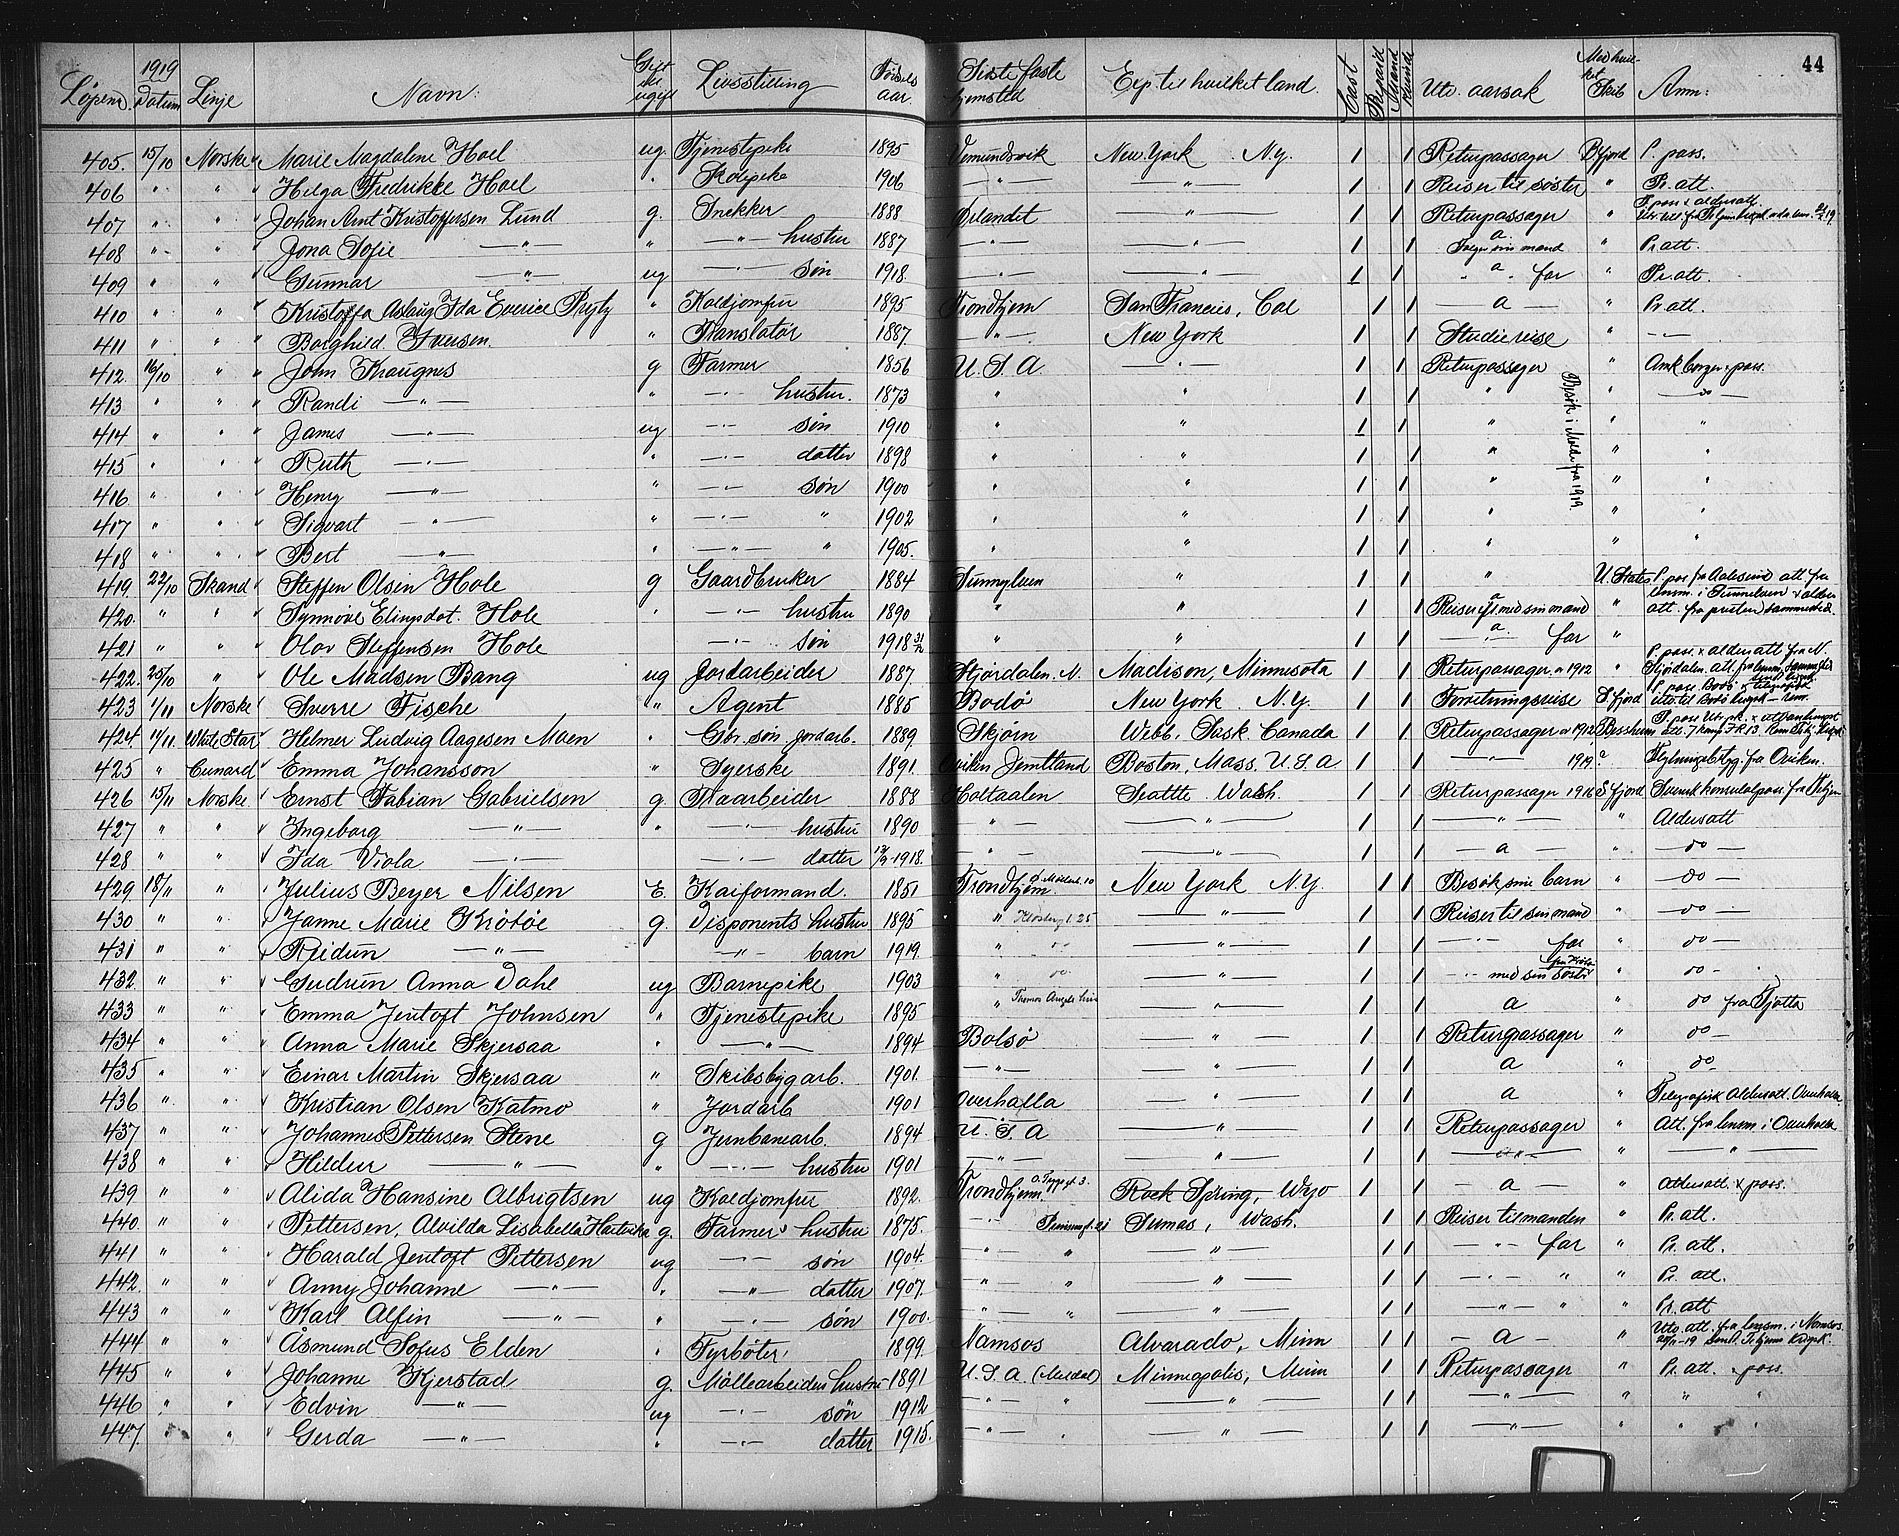 44
Löpenr. 1919 Datum Linje Navn: Gift el. ugift Livsstilling Födsels aar. Siste faste hjemsted Exp. til hvilket land. Cont Prepaid Mand Kvinde Utv. aarsak Med hvilket Skib Anm:
405. 15/10 Norske Marie Magdalene Hoel ug. Tjenestepike 1895 Vemundsvik New York N.Y. 1 1 Returpassager B.fjord P. pass.
406 " " Helga Fredrikke Hoel " Skolepike 1906 — " — — " — 1 1 Reiser til søster " Pr. att.
407 " " Johan Arnt Kristoffersen Lund g. Snekker 1888 Ørlandet " 1 1 Returpassager " P. pass & aldersatt.
408 " " Jona Sofie — " — " — " — hustru 1887 — " — — " — 1 1 Følger sin mand " Pr. att.
409 " " Gunnar — " — ug — " — søn 1918. — " — — " — 1 1 " a " far " Pr. att.
410 " " Kristoffa Aslaug Ida Everice Ryjty " Koldjomfru 1895 Trondhjem San Francis, Cal 1 1 — a — " Pr att.
411 " " Borghild Iversen. " Translatør 1887. — " — New York 1 1 Studiereise " — " —
412. 16/10 " " John Kraugnes g Farmer 1856 U.S.A — " — 1 1 Returpassager " Amk borger & pass.
413 " " " Randi — " — " — " — hustru. 1873 " " 1 1 " " — do —
Besøk i Molde fra 1919.
414 " " " James — " — ug — " — søn 1910 " " 1 1 " " "
415 " " Ruth — " — " — " — datter 1898 " " 1 1 " " "
416 " " Henry — " — " — " — søn 1900 " " 1 1 " " "
417 " " Sigvart — " — " — " — " 1902 " " 1 1 " " "
418 " " Bert — " — " — " — " 1905. " " 1 1 " " "
419. 22/10 Skand Steffen Olsen Hole g Gaardbruker 1884 Sunnylven " 1 1 " U. States P. pas fra Aalesund att fra
420. " " Synnøve Elingsdot. Hole " — " — hustru 1890 " " 1 1 Reiser med sin mand " lensm. i Sunnelven & alders att. fra presten sammested.
421 " " Olav Steffensen Hole — " — søn 1918 " " 1 1 — a — far "
422. 20/10 " Ole Madsen Bang ug Jordarbeider 1887. Stjørdalen. N. Madison, Minnesota 1 1 Returpassager a 1912 " P. pass. & aldersatt fra N. Stjørdalen att. fra lensm. sammested
423 1/11 Norske Sverre Fische " Agent 1885 Bodø New York N.Y. 1 1 Forretningsreise S.fjord P. pass Bodø
424. 11/11. White Star Helmer Ludvig Aagesen Moen " Gbr. søn jordarb. 1889. Skjørn Webb, Sask. Canada 1 1 Returpassager a 1912 Bessheim
425 " Cunard Emma Johansson " Syerske 1891. Oviken Jemtland Boston, Mass. U.S.A 1 1 — " — 1914. Flytningsbtyg. fra Oviken.
426 15/11 Norske Ernst Fabian Gabrielsen g. Straarbeider 1888 Holtaalen Seattle Wash. 1 1 Returpassager 1916 S.fjord Svensk konsulatpass. fra Thjem
427 " " Ingeborg — " — " — " — hustru 1890 — " — — " — 1 1 — " — " Aldersatt
428 " " Ida Viola — " — — " — datter 1918. — " — — " — 1 1 — a — " — do —
429 18/11 " Julius Beyer Nilsen E. Kaiformand. 1851 Trondhjem. Ø. Møllenb. 10 New York N.Y. 1 1 Besøk sine barn " — do —
430 " " Janne Marie Krøtøe g. Disponents hustru 1895 " Klosterg t. 25 — " — 1 1 Reiser til sin mand " — do —
431 " " Reidun — " — — " — barn 1919. " do — " — 1 1 — " — far " do —
432 " " Gudrun Anna Dahl ug Barnepike 1903 " do — " — 1 1 — " — med sin søster fru Krøtø " do —
433 " " Emma Jentoft Johnsen " Tjenestepike 1895 " Thomas Angels hus — " — 1 1 a " do fra Tjøtta
434 " " Anna Marie Skjersaa " — " — 1894 Bolsø — " — 1 1 Returpassager " do —
435 " " Einar Martin Skjersaa " Skibsbygarb. 1901. — " — — " — 1 1 a " do —
436 " " Kristian Olsen Katmo " Jordarb 1901 Overhalla — " — 1 1 a " Telegrafisk Aldersatt. Overhalla
437 " " Johannes Pettersen Stene g Jernbanearb. 1894 U.S.A — " — 1 1 Returpassager " Att. fra lensm. i Overhalla
438 " " Hildur — " — " — " — hustru 1901 — " — — " — 1 1 — " — " — " —
439 " " Alida Hansine Albrigtsen ug Koldjomfru 1892. Trondhjem Rock Spring, Wyo 1 1 — a — " Aldersatt. & pass.
440. " " Pettersen, Alvilda Lisabella Hartvika g. Farmers hustru 1875. — " — Sumas, Wash. 1 1 Reiser til manden " Pr. att.
441 " " Harald Jentoft Pettersen ug — " — søn 1904. — " — " — " — 1 1 — " — far " Pr. att.
442. " " Anny Johanne — " — " — " — datter 1907. — " — " — " — 1 1 — " — " " Pr. att.
443 " " Karl Alfin — " — " — " — søn 1900. — " — " — " — 1 1 — " — " " Pr. att
444 " " Åsmund Sofus Elden " Fyrbøter. 1899. Namsos Alvarado, Minn 1 1 — a — " Utv. att. fra lensm. i Namsos.
445 " " Johanne Kjerstad g. Møllearbeiders hustru 1891 U.S.A. (Meldal) Minneapolis, Minn 1 1 Returpassager " Pr. att. & pass.
446 " " Edvin — " — ug — " — søn 1912 — " — " — " — 1 1 — " — " " "
447. " " Gerda — " — " — " — datter 1915. — " — " — " — 1 1 — " — " " "